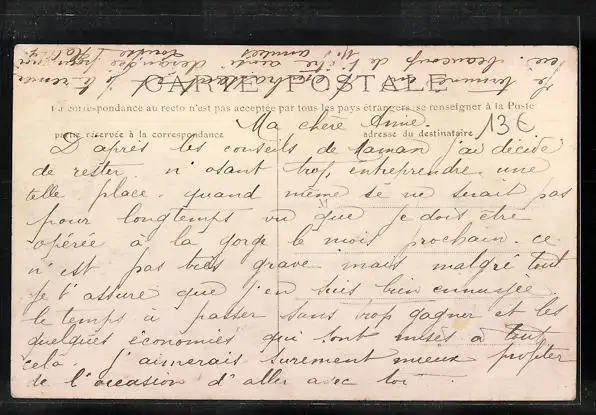 CARTE POSTALE
La correspondance au recto n'est pas acceptée par tous les pays étrangers (se renseigner à la Poste
partie réservée à la correspondance
adresse du destinataire
13€
Ma chère Amie
D'après les conseils de maman j'ai décidé
de rester n'osant trop entreprendre une
telle place. quand même se ne serait pas
pour longtemps vu que je dois être
opérée à la gorge le mois prochain. ce
n'est pas très grave mais malgré tout
je t'assure que j'en suis bien ennuyée
le temps à passer sans trop gagner et les
quelques économies qui sont mises à tout
cela. J'aimerais surement mieux profiter
de l'occasion d'aller avec toi
Je termine en te
beaucoup de t'être ainsi dérangée pour moi
amitiés